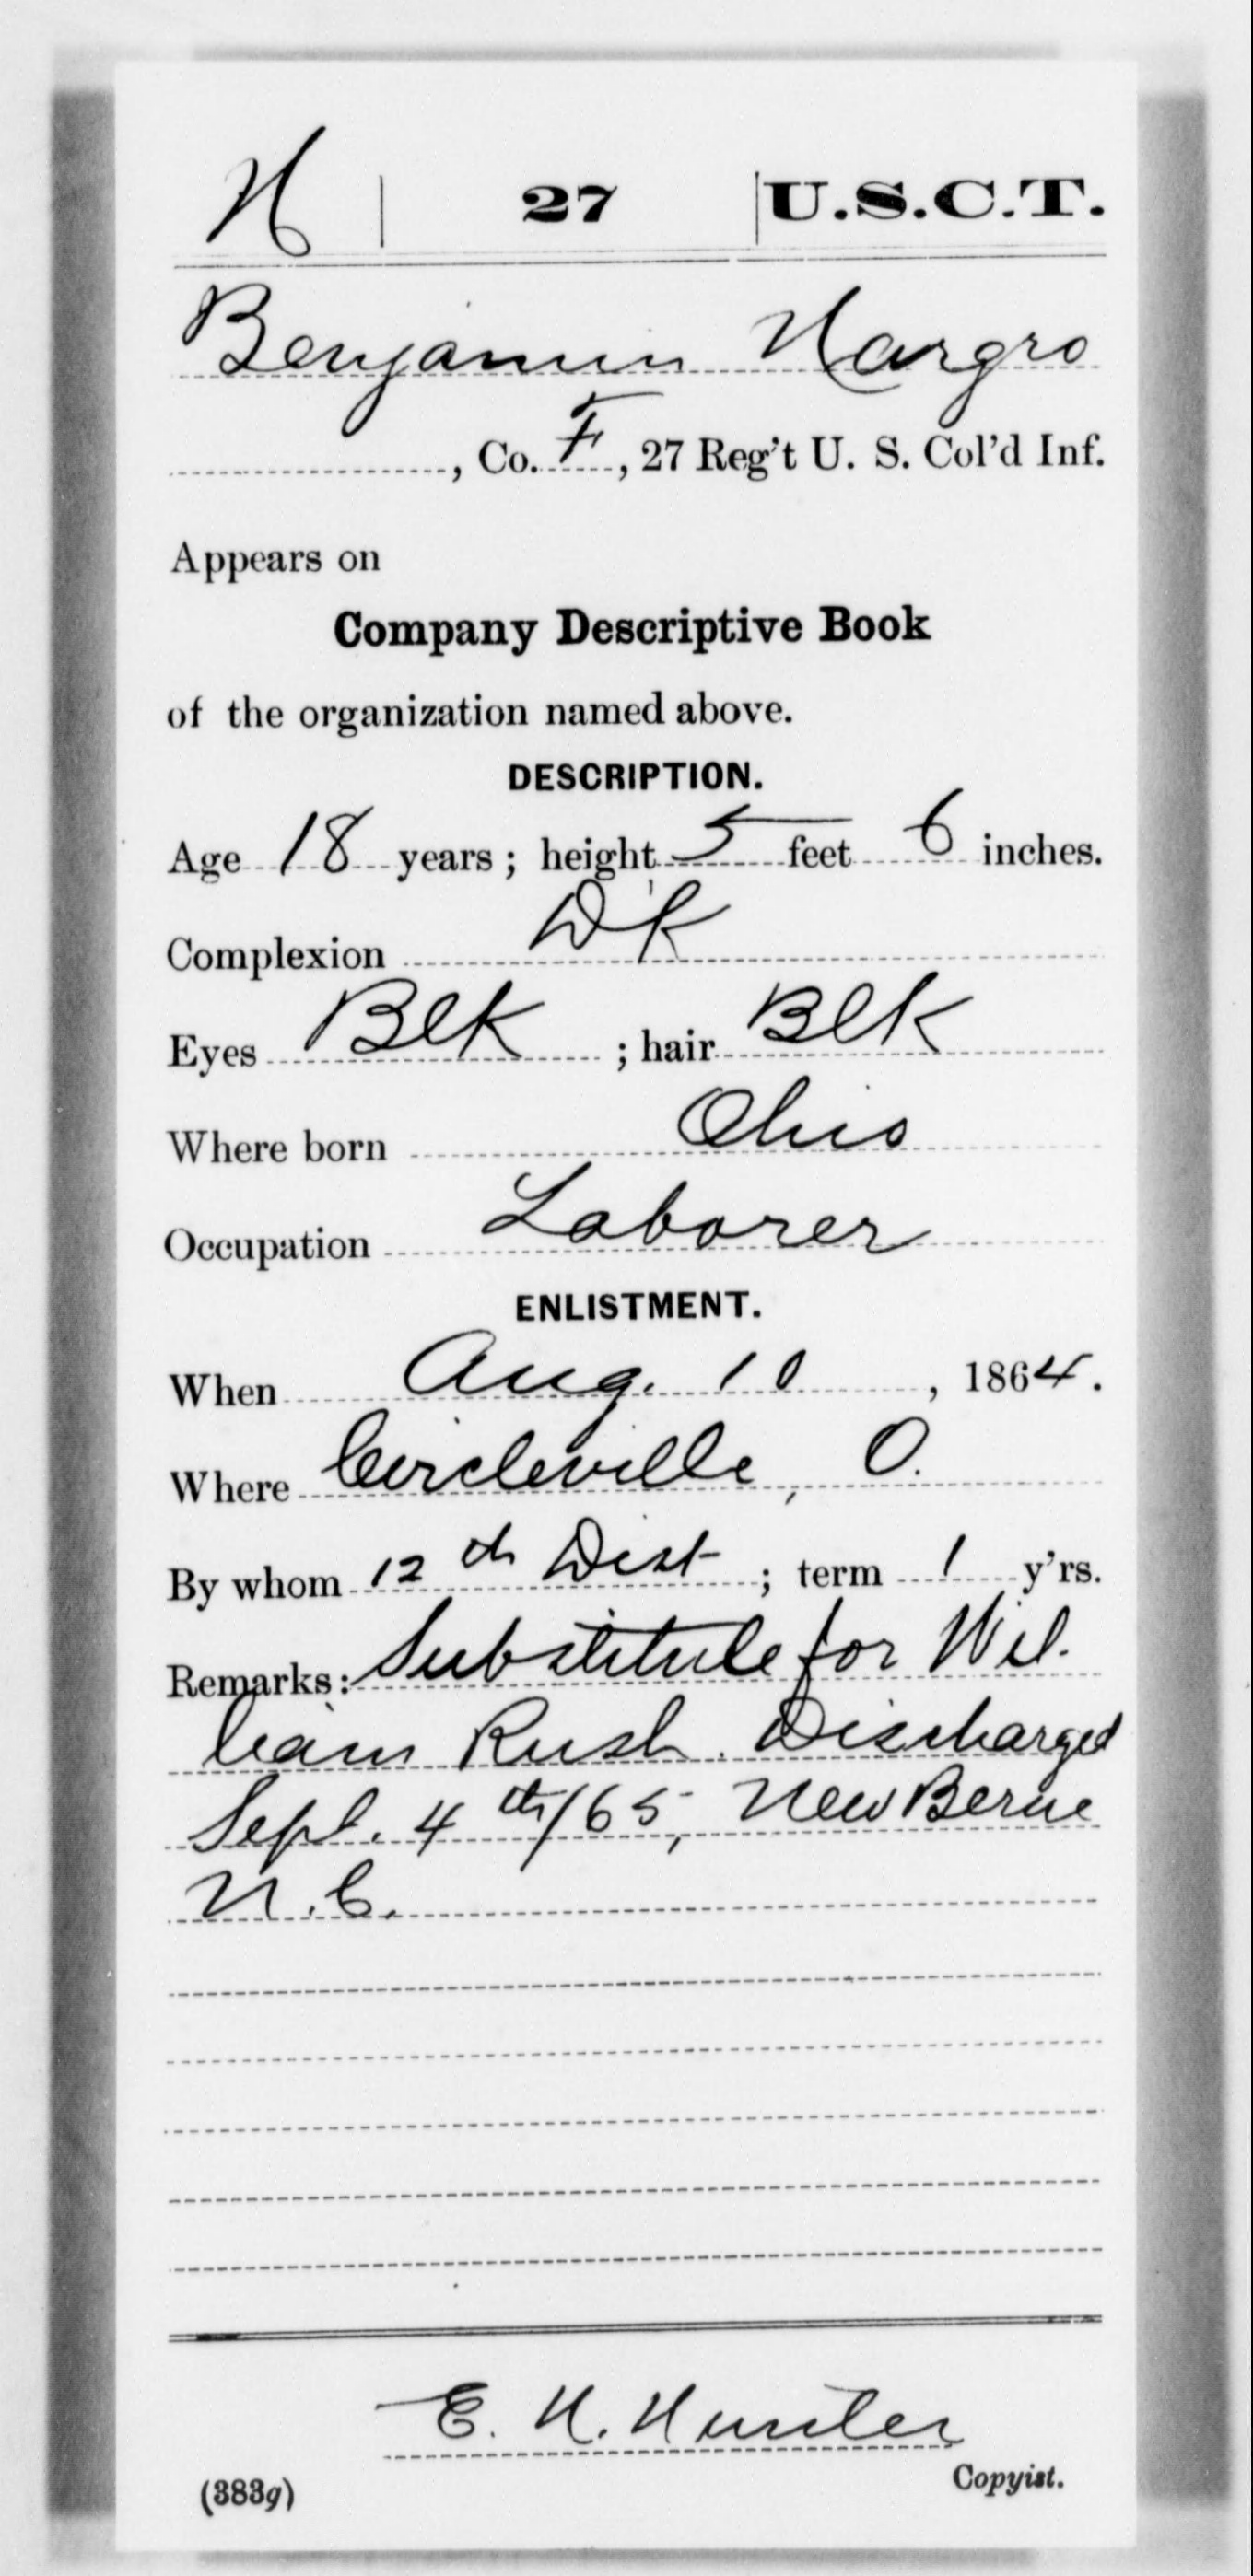 H | 27 | U.S.C.T.
Benjamin Hargro
, Co. F, 27 Reg't U. S. Col'd Inf.
Appears on
Company Descriptive Book
of the organization named above.
DESCRIPTION.
Age 18 years; height 5 feet 6 inches.
Complexion Dk
Eyes Blk ; hair Blk
Where born Ohio
Occupation Laborer
ENLISTMENT.
When Aug. 10, 1864.
Where Circleville, O.
By whom 12th Dist ; term 1 y'rs.
Remarks: Substitute for Wil.
liam Rush. Discharged
Sept. 4th/65, New Berne
N.C.
E. H. Hunter
Copyist.
(383g)